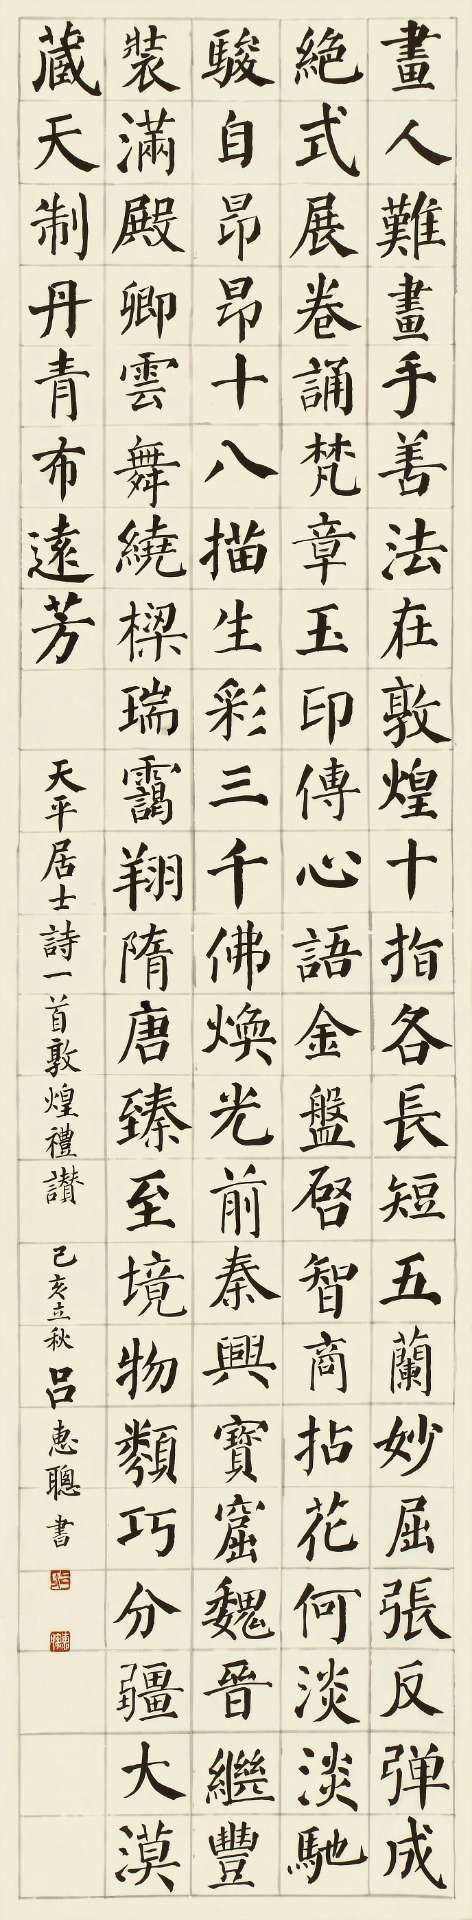 畫人難畫手善法在敦煌十指各長短五蘭妙屈張反弹成
絕式展卷誦梵章玉印傳心語金盤啓智商拈花何淡淡馳
駿自昂昂十八描生彩三千佛煥光前秦興寶窟魏晉繼豐
裝滿殿卿雲舞繞樑瑞靄翔隋唐臻至境物類巧分疆大漠
蔵天制丹青布遠芳
天平居士詩一首敦煌禮讃 己亥立秋 呂惠聰書